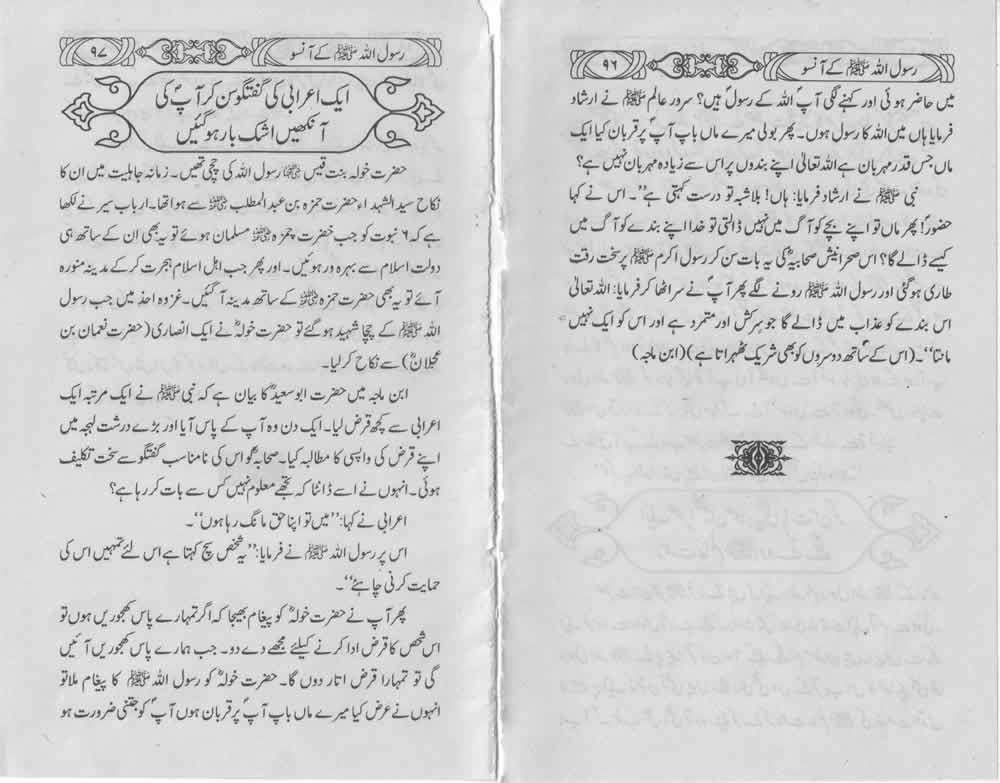 رسول اللہ ﷺ کے آنسو
۹۶
میں حاضر ہوئی اور کہنے لگی آپؐ اللہ کے رسولؐ ہیں؟ سرور عالم ﷺ نے ارشاد
فرمایا ہاں میں اللہ کا رسول ہوں۔ پھر بولی میرے ماں باپ آپؐ پر قربان کیا ایک
ماں جس قدر مہربان ہے اللہ تعالیٰ اپنے بندوں پر اس سے زیادہ مہربان نہیں ہے؟
نبی ﷺ نے ارشاد فرمایا: ہاں! بلاشبہ تو درست کہتی ہے‘‘۔ اس نے کہا
حضورؐ! پھر ماں تو اپنے بچے کو آگ میں نہیں ڈالتی تو خدا اپنے بندے کو آگ میں
کیسے ڈالے گا؟ اس صحرا نیش صحابیہؓ کی یہ بات سن کر رسول اکرم ﷺ پر سخت رقت
طاری ہوگئی اور رسول اللہ ﷺ رونے لگے پھر آپؐ نے سر اٹھا کر فرمایا: اللہ تعالیٰ
اس بندے کو عذاب میں ڈالے گا جو سرکش اور متمرد ہے اور اس کو ایک نہیں
مانتا‘‘۔ (اس کے ساتھ دوسروں کو بھی شریک ٹھہراتا ہے) (ابن ماجہ)
رسول اللہ ﷺ کے آنسو
۹۷
ایک اعرابی کی گفتگو سن کر آپؐ کی
آنکھیں اشک بار ہوگئیں
حضرت خولہ بنت قیس ﷺ رسول اللہ کی چچی تھیں۔ زمانہ جاہلیت میں ان کا
نکاح سید الشہداء حضرت حمزہ بن عبدالمطلب ﷺ سے ہوا تھا۔ ارباب سیر نے لکھا
ہے کہ ۶ نبوت کو جب حضرت حمزہ ﷺ مسلمان ہوئے تو یہ بھی ان کے ساتھ ہی
دولت اسلام سے بہرہ ور ہوئیں۔ اور پھر جب اہل اسلام ہجرت کر کے مدینہ منورہ
آئے تو یہ بھی حضرت حمزہ ﷺ کے ساتھ مدینہ آگئیں۔ غزوہ احد میں جب رسول
اللہ ﷺ کے چچا شہید ہوگئے تو حضرت خولہؓ نے ایک انصاری (حضرت نعمان بن
عجلانؓ) سے نکاح کرلیا۔
ابن ماجہ میں حضرت ابوسعیدؓ کا بیان ہے کہ نبی ﷺ نے ایک مرتبہ ایک
اعرابی سے کچھ قرض لیا۔ ایک دن وہ آپ کے پاس آیا اور بڑے درشت لہجہ میں
اپنے قرض کی واپسی کا مطالبہ کیا۔ صحابہؓ کو اس کی نامناسب گفتگو سے سخت تکلیف
ہوئی۔ انہوں نے اسے ڈانٹا کہ تجھے معلوم نہیں کس سے بات کر رہا ہے؟
اعرابی نے کہا: ’’میں تو اپنا حق مانگ رہا ہوں‘‘۔
اس پر رسول اللہ ﷺ نے فرمایا: ’’یہ شخص سچ کہتا ہے اس لئے تمہیں اس کی
حمایت کرنی چاہئے‘‘۔
پھر آپ نے حضرت خولہؓ کو پیغام بھیجا کہ اگر تمہارے پاس کھجوریں ہوں تو
اس شخص کا قرض ادا کرنے کیلئے مجھے دے دو۔ جب ہمارے پاس کھجوریں آئیں
گی تو تمہارا قرض اتار دوں گا۔ حضرت خولہؓ کو رسول اللہ ﷺ کا پیغام ملا تو
انہوں نے عرض کیا میرے ماں باپ آپؐ پر قربان ہوں آپؐ کو جتنی ضرورت ہو